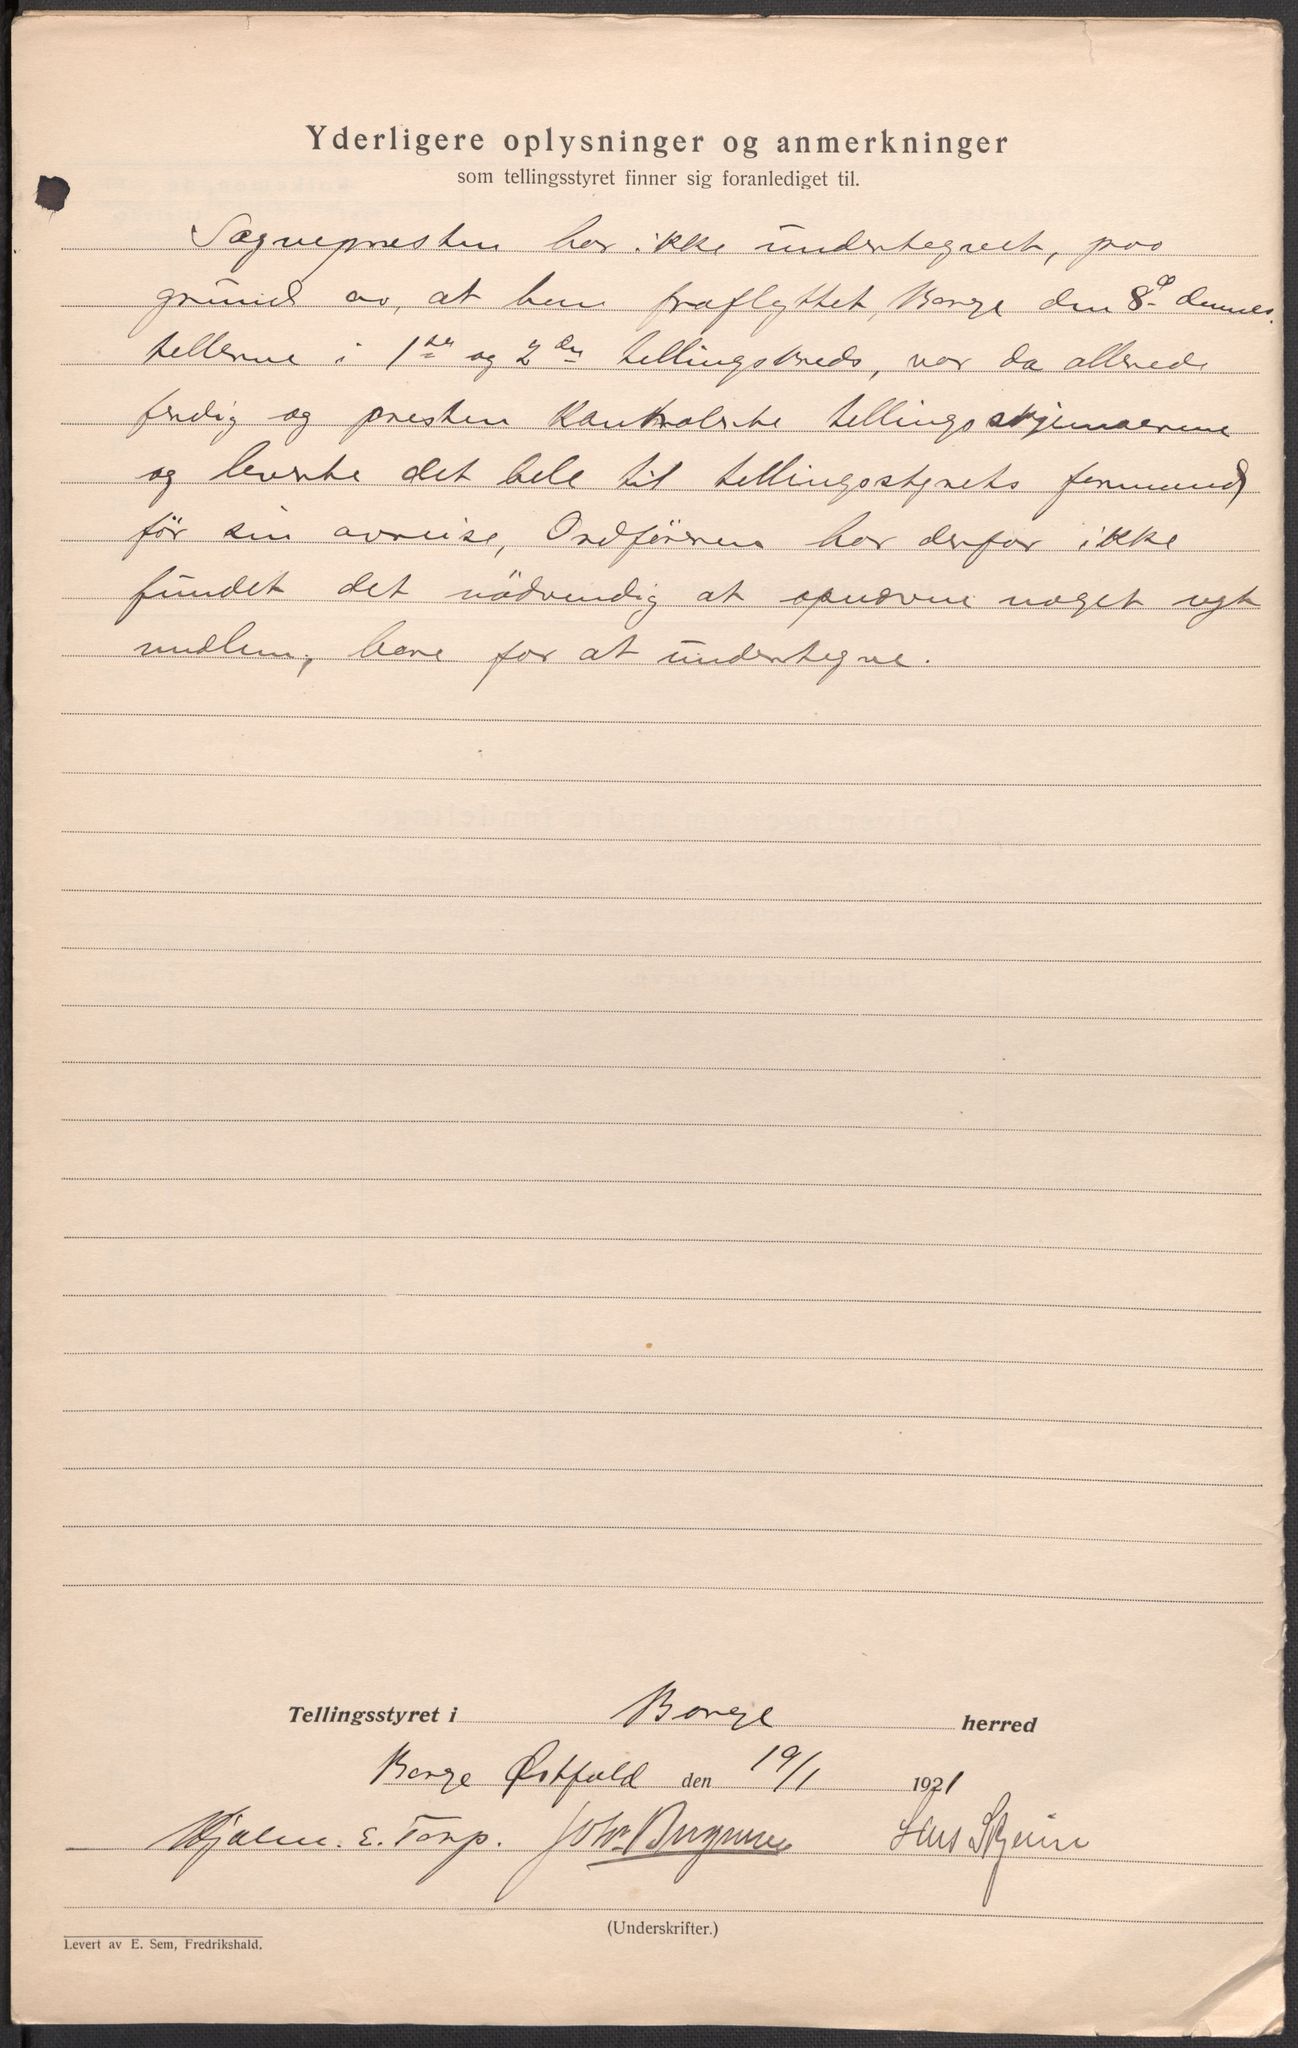 Yderligere oplysninger og anmerkninger
som tellingsstyret finner sig foranlediget til.
Sognepresten har ikke undertegnet, paa
grund av, at han fraflyttet, Borge den 8de dennes.
tellerne i 1ste og 2den tellingskreds, var da allerede
ferdig og presten kontrolerte tellingsskjemaerne
og leverte det hele til tellingsstyrets formand
før sin avreise, Ordføreren har derfor ikke
fundet det nödvendig at opnævne noget nyt
medlem, bare for at undertegne.
Tellingsstyret i Borge herred
Borge Østfold den 19/1 1921
Hjalm. E. Torp. Hans Skjeiin
(Underskrifter.)
Levert av E. Sem, Fredrikshald.